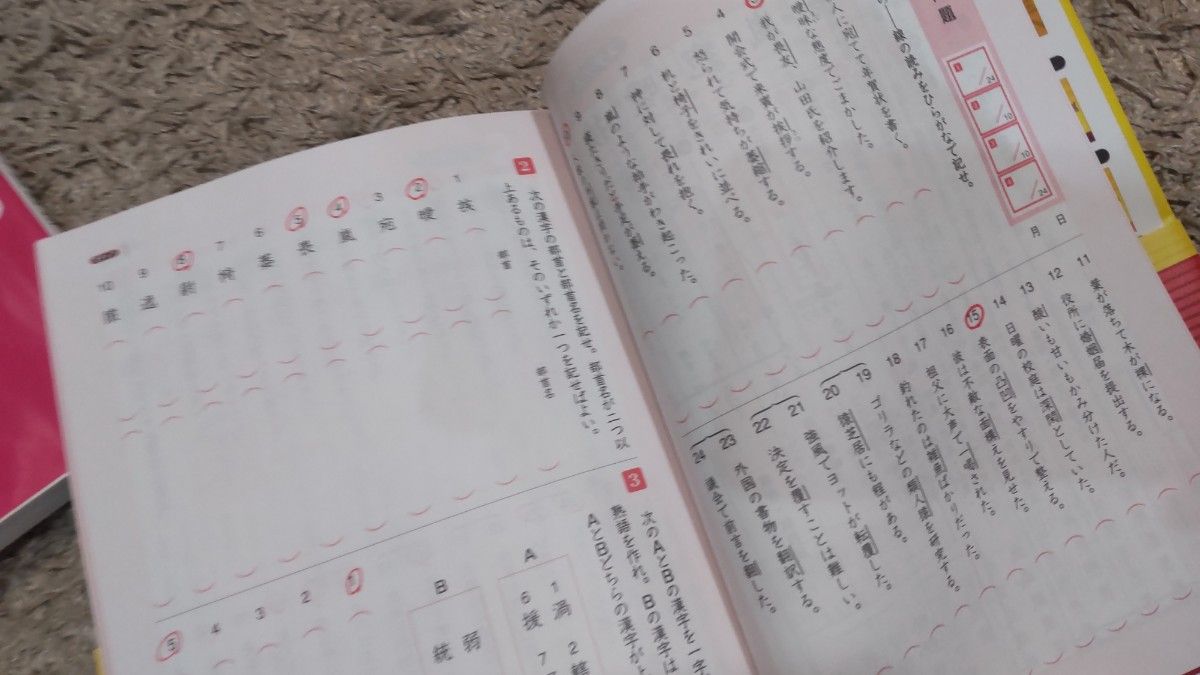 題
線の読みをひらがなで記せ。
月 日
1 24
2 10
3 10
4 24
人に宛てて年賀状を書く。
曖昧な態度でごまかした。
我が畏友、山田氏を紹介します。
4 開会式で来賓が挨拶する。
5 怒られて気持ちが萎縮する。
6 机と椅子をきれいに並べる。
7 俺に対して畏れを抱く。
8 嵐のような拍手がわき起こった。
9
11 葉が落ちて木が裸になる。
12 役所に婚姻届を提出する。
13 酸いも甘いもかみ分けた人だ。
14 日曜の校庭は深閑としていた。
15 表面の凸凹をやすりで整える。
16 彼は不敵な面構えを見せた。
17 祖父に大声で一喝された。
18 釣れたのは雑魚ばかりだった。
19 ゴリラなどの類人猿を研究する。
20 猿芝居にも程がある。
21 強風でヨットが転覆した。
22 決定を覆すことは難しい。
23 外国の書物を翻訳する。
24 議会で前言を翻した。
2 次の漢字の部首と部首名を記せ。部首名が二つ以
上あるものは、そのいずれか一つを記せばよい。
部首 部首名
1 挨
2 曖
3 宛
4 嵐
5 畏
6 萎
7 椅
8
9
10
3 次のAとBの漢字を一字
熟語を作れ。Bの漢字は
AとBどちらの漢字が
A
1 渦 2
6 援 7
B
弱
統
1
2
3
4
5